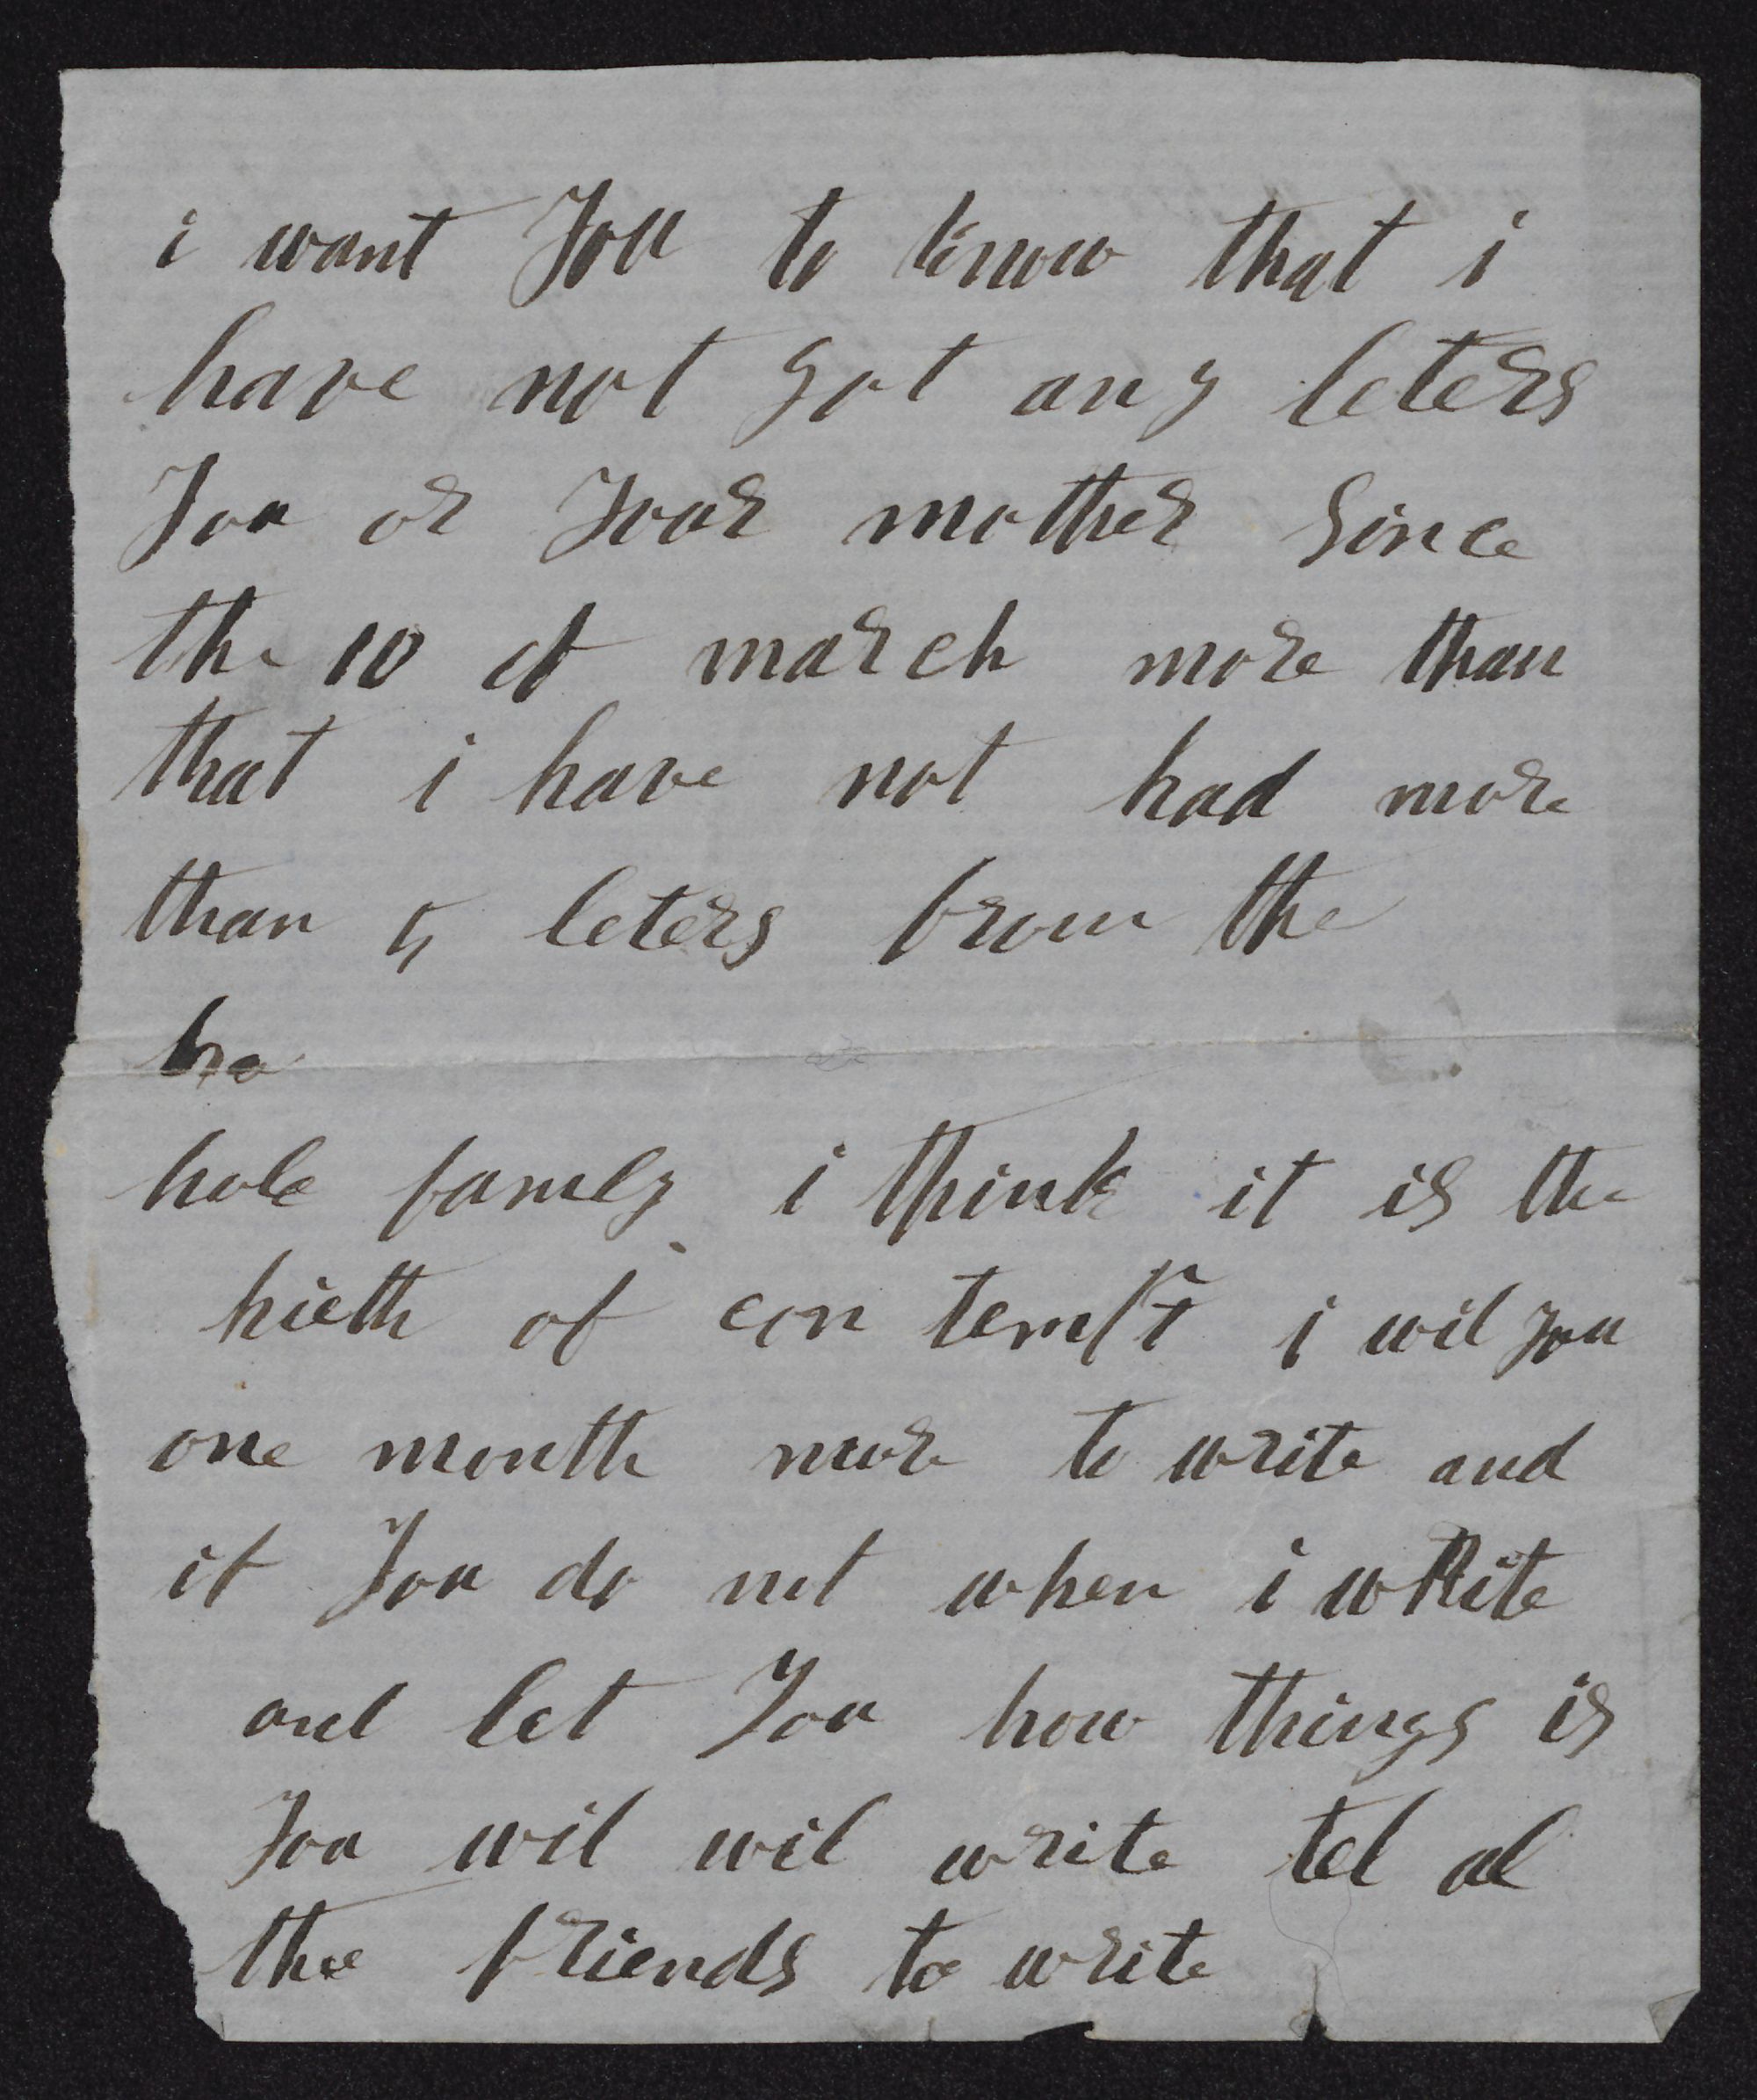 i want you to know that i
have not got any leters
you or your mother since
the 10 of march more than
that i have not had more
than 5 leters from the
ho
hole famly i think it is the
hieth of con tempt i wil you
one month more to write and
if you do not when i wRite
and let you how things is
you wil wil write tel al
the friends to write